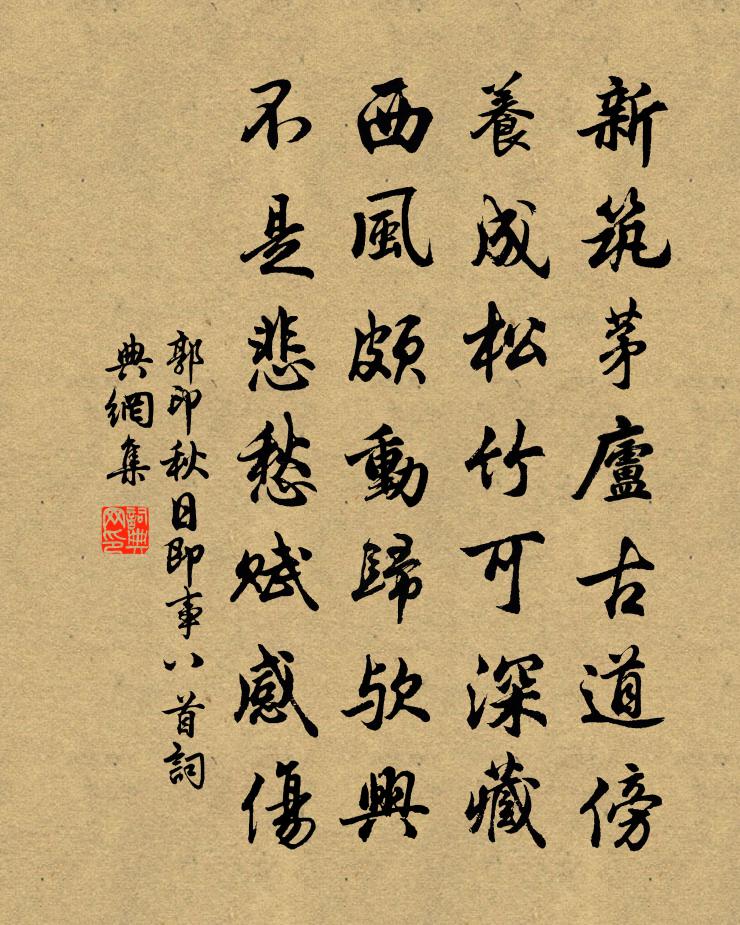 新筑茅廬古道傍
養成松竹可深藏
西風頗動歸歟興
不是悲愁賦感傷
郭印秋日即事八首詞
典網集
詞典
网印